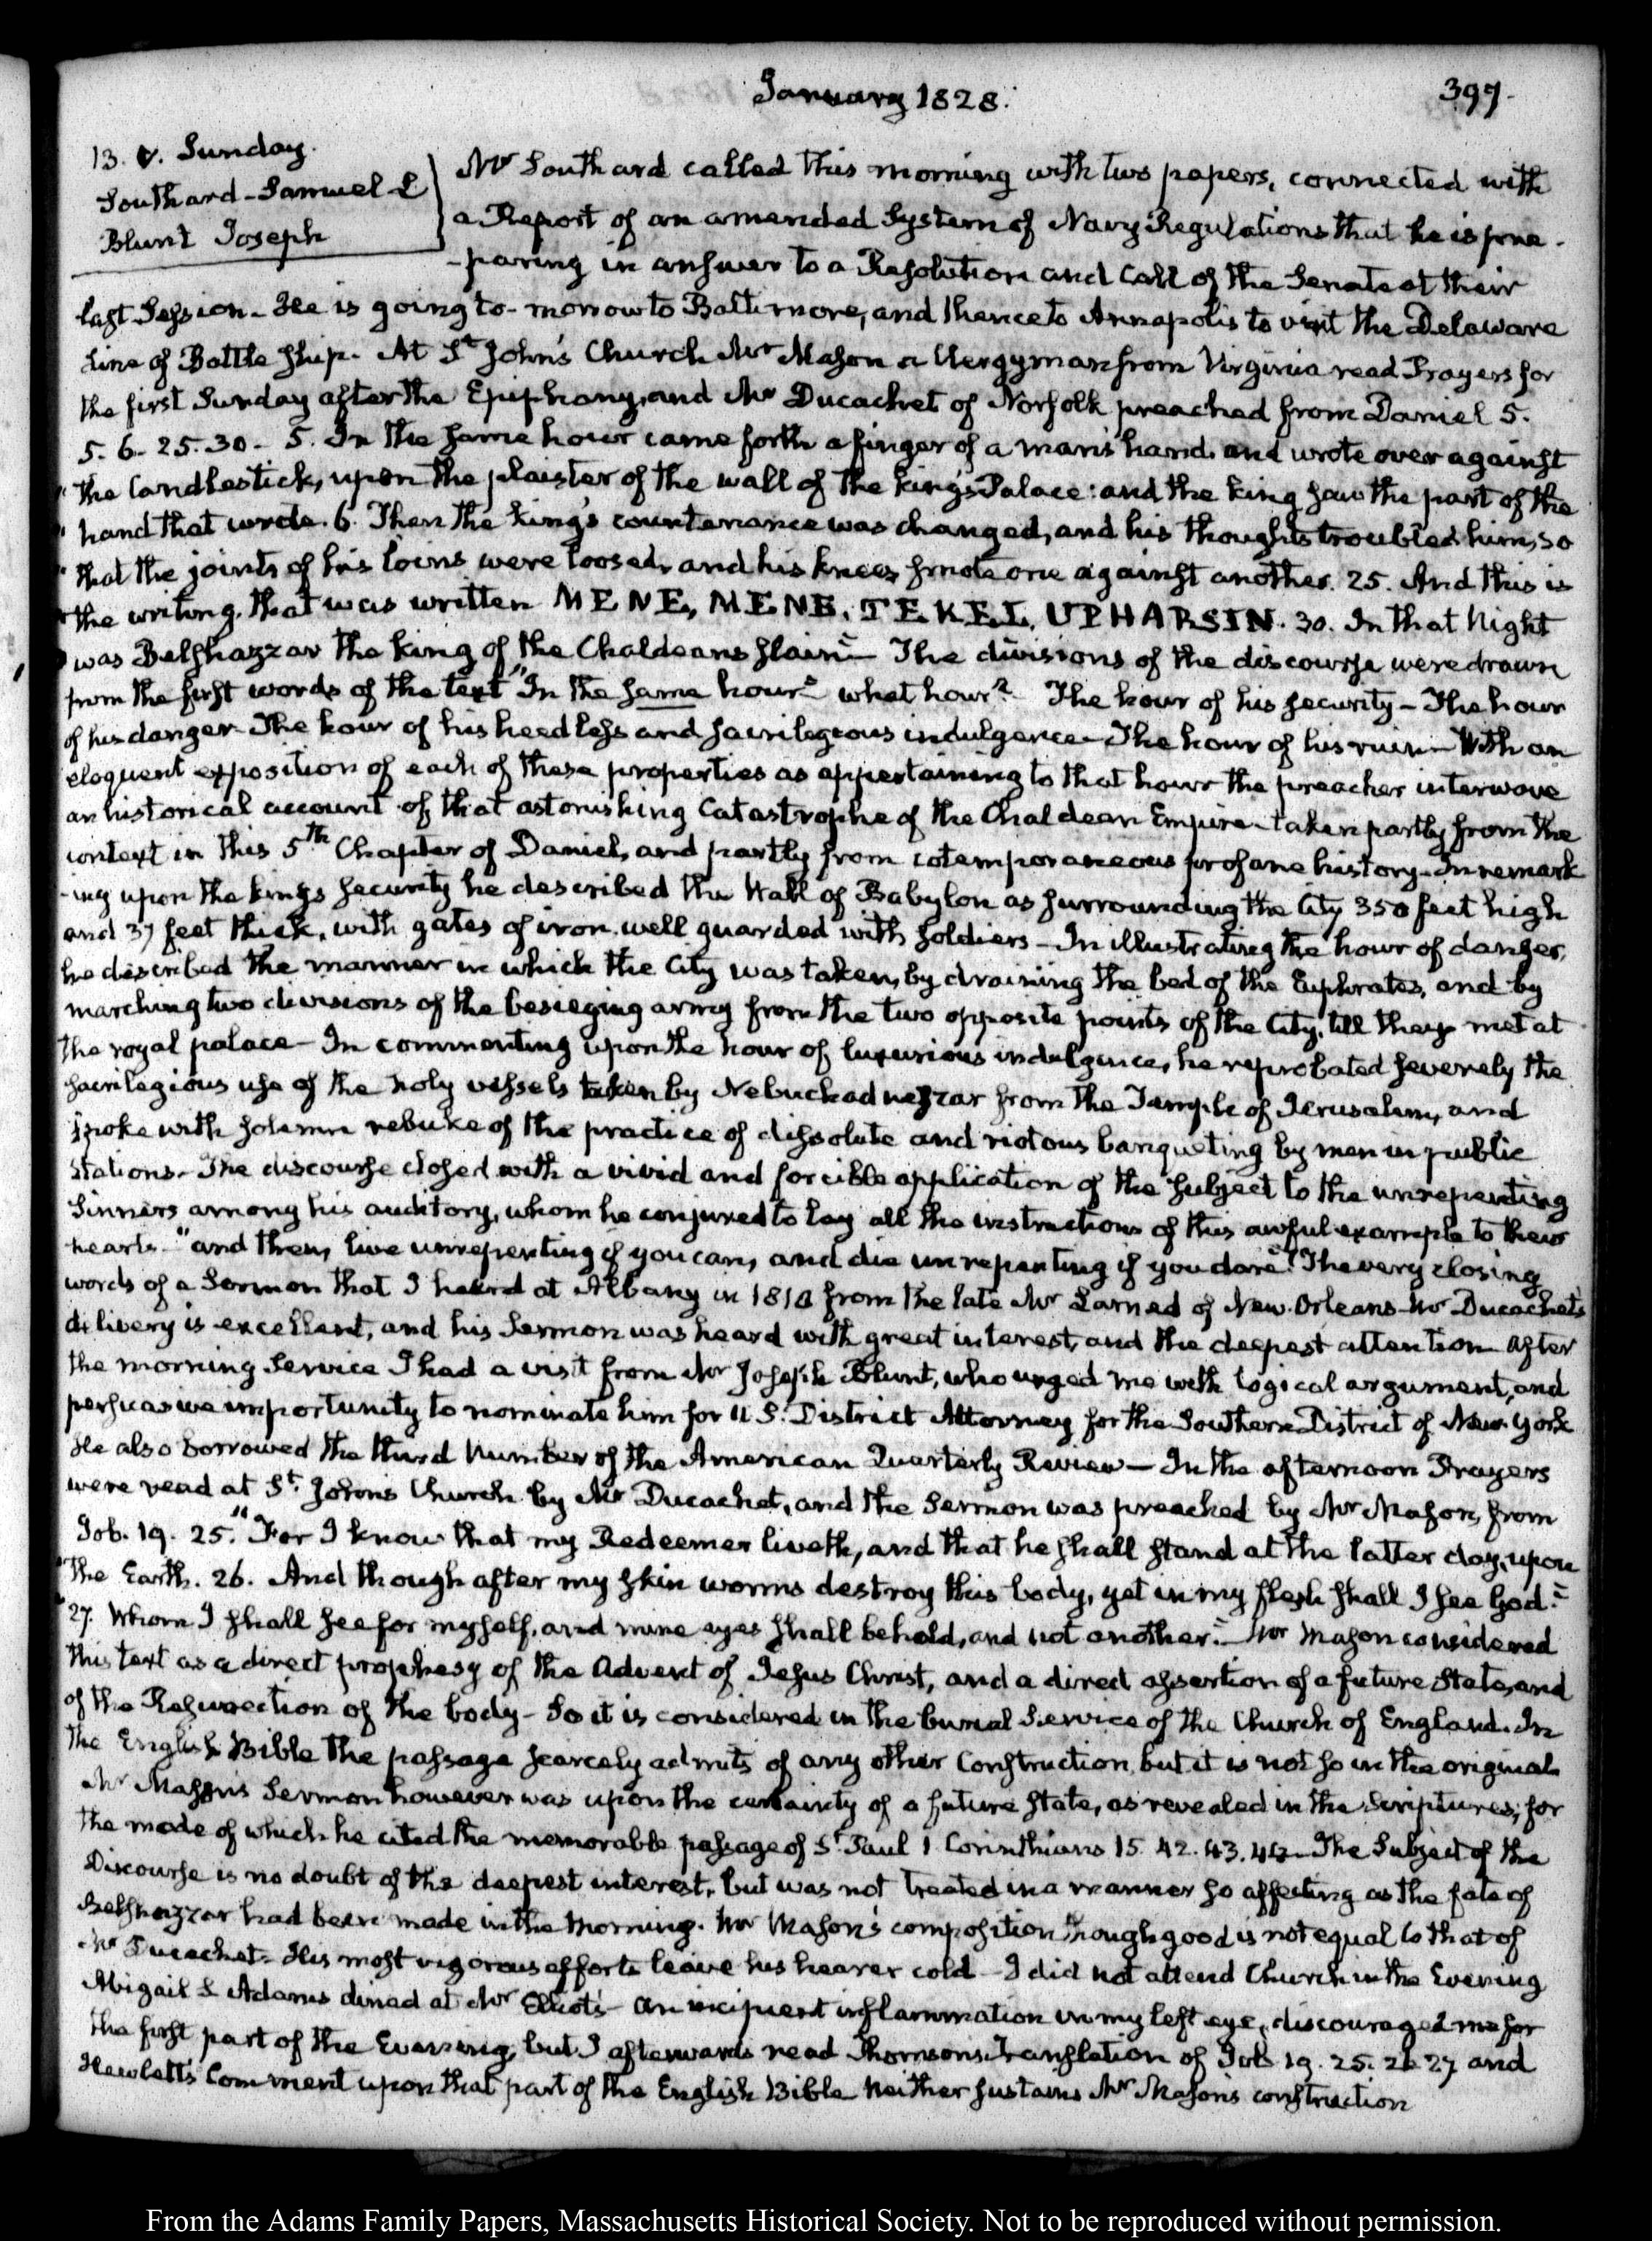 January 1828.
397.
13. V. Sunday.
Southard - Samuel L
Blunt Joseph
Mr Southard called this morning with two papers, connected with
a Report of an amended System of Navy Regulations that he is pre-
-paring in answer to a Resolution and Call of the Senate at their
last Session - He is going to-morrow to Baltimore, and thence to Annapolis to visit the Delaware
Line of Battle ship. At St John's Church Mr Mason a Clergyman from Virginia read Prayers for
the first Sunday after the Epiphany, and Mr Ducachet of Norfolk preached from Daniel 5.
5. 6. 25. 30 - 5. In the same hour came forth a finger of a man's hand. and wrote over against
" the Candlestick, upon the plaister of the wall of the king's Palace: and the king saw the part of the
" hand that wrote. 6. Then the king's countenance was changed, and his thoughts troubled him, so
" that the joints of his loins were loosed, and his knees smote one against another. 25. And this is
" the writing, that was written MENE, MENE, TEKEL, UPHARSIN. 30. In that Night
" was Belshazzar the king of the Chaldeans slain" - The divisions of the discourse were drawn
from the first words of the text "In the same hour" what hour? The hour of his security - The hour
of his danger - The hour of his heedless and sacrilegious indulgence - The hour of his ruin - With an
eloquent exposition of each of these properties as appertaining to that hour the preacher interwove
an historical account of that astonishing Catastrophe of the Chaldean Empire - taken partly from the
context in this 5th Chapter of Daniel, and partly from cotemporaneous profane history - In remark
-ing upon the kings security he described the Wall of Babylon as surrounding the City 350 feet high
and 37 feet thick, with gates of iron, well guarded with soldiers - In illustrating the hour of danger,
he described the manner in which the City was taken, by draining the bed of the Euphrates, and by
marching two divisions of the besieging army from the two opposite points of the City, till they met at
the royal palace - In commenting upon the hour of luxurious indulgence, he reprobated severely the
sacrilegious use of the holy vessels taken by Nebuchadnezzar from the Temple of Jerusalem, and
spoke with solemn rebuke of the practice of dissolute and riotous banqueting by men in public
Stations - The discourse closed with a vivid and forcible application of the subject to the unrepenting
Sinners among his auditory, whom he conjured to lay all the instructions of this awful example to their
hearts - "and then, live unrepenting if you can, and die unrepenting if you dare"! The very closing
words of a Sermon that I heard at Albany in 1818 from the late Mr Larned of New-Orleans - Mr Ducachet's
delivery is excellent, and his Sermon was heard with great interest, and the deepest attention - After
the morning Service I had a visit from Mr Joseph Blunt, who urged me with logical argument, and
persuasive importunity to nominate him for U.S. District Attorney for the Southern District of New-York
He also borrowed the third Number of the American Quarterly Review - In the afternoon Prayers
were read at St John's Church by Mr Ducachet, and the Sermon was preached by Mr Mason, from
Job. 19. 25. "For I know that my Redeemer liveth, and that he shall stand at the latter day, upon
" the Earth. 26. And though after my skin worms destroy this body, yet in my flesh shall I see God."
" 27. Whom I shall see for myself, and mine eyes shall behold, and not another." - Mr Mason considered
this text as a direct prophesy of the Advent of Jesus Christ, and a direct assertion of a future State, and
of the Resurrection of the body - So it is considered in the burial Service of the Church of England. In
the English Bible the passage scarcely admits of any other Construction, but it is not so in the original.
Mr Mason's Sermon however was upon the certainty of a future state, as revealed in the Scriptures; for
the mode of which he cited the memorable passage of St Paul 1 Corinthians 15. 42. 43. 44 - The Subject of the
Discourse is no doubt of the deepest interest, but was not treated in a manner so affecting as the fate of
Belshazzar had been made in the Morning. Mr Mason's composition though good is not equal to that of
Mr Ducachet. His most vigorous efforts leave his hearer cold - I did not attend Church in the Evening
Abigail S. Adams dined at Mr Elliot's - An incipient inflammation in my left eye, discouraged me for
the first part of the Evening, but I afterwards read Thomsons Translation of Job 19. 25. 26 27 and
Hewlett's Comment upon that part of the English Bible - Neither sustains Mr Mason's construction
From the Adams Family Papers, Massachusetts Historical Society. Not to be reproduced without permission.